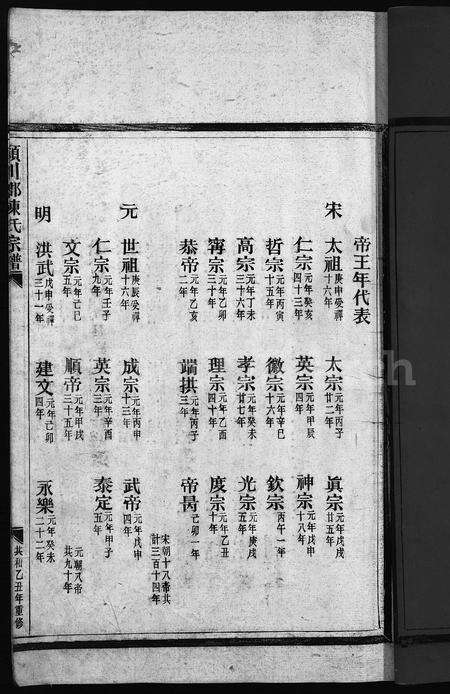 帝王年代表
宋 太祖庚申受禪十六年 太宗元年丙子廿二年 眞宗元年戊戌廿五年
仁宗元年癸亥四十三年 英宗元年甲辰四年 神宗元年戊申十八年
哲宗元年丙寅十五年 徽宗元年辛巳十六年 欽宗丙午一年
高宗元年丁未三十六年 孝宗元年癸未廿七年 光宗元年庚戌五年
寗宗元年乙卯三十年 理宗元年乙酉四十年 度宗元年乙丑十年
恭帝元年乙亥二年 端拱元年丙子三年 帝昺己卯一年
宋朝十八帝共計三百十四年
元 世祖庚辰受禪十六年 成宗元年丙申十三年 武帝元年戊申四年
仁宗元年壬子九年 英宗元年辛酉三年 泰定元年甲子五年
文宗元年己巳五年 順帝元年甲戌三十五年 元朝八帝共九十年
明 洪武戊申受禪三十一年 建文元年己卯四年 永樂元年癸未二十二年
潁川郡陳氏宗譜
共和乙丑年重修